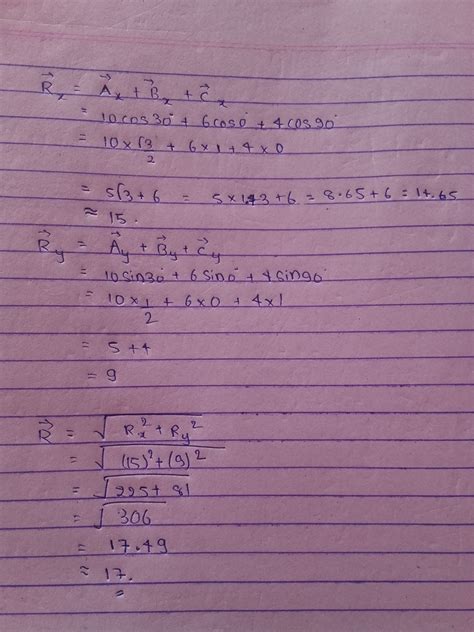 R⃗x = A⃗x + B⃗x + C⃗x
= 10cos30° + 6cos0° + 4cos90°
= 10 × √3/2 + 6×1 + 4×0
= 5√3 + 6 = 5×1.73 + 6 = 8.65 + 6 = 14.65
≈ 15.
R⃗y = A⃗y + B⃗y + C⃗y
= 10sin30° + 6sin0° + 4sin90°
= 10 × 1/2 + 6×0 + 4×1
= 5 + 4
= 9
R⃗ = √Rx² + Ry²
= √(15)² + (9)²
= √225 + 81
= √306
= 17.49
≈ 17.